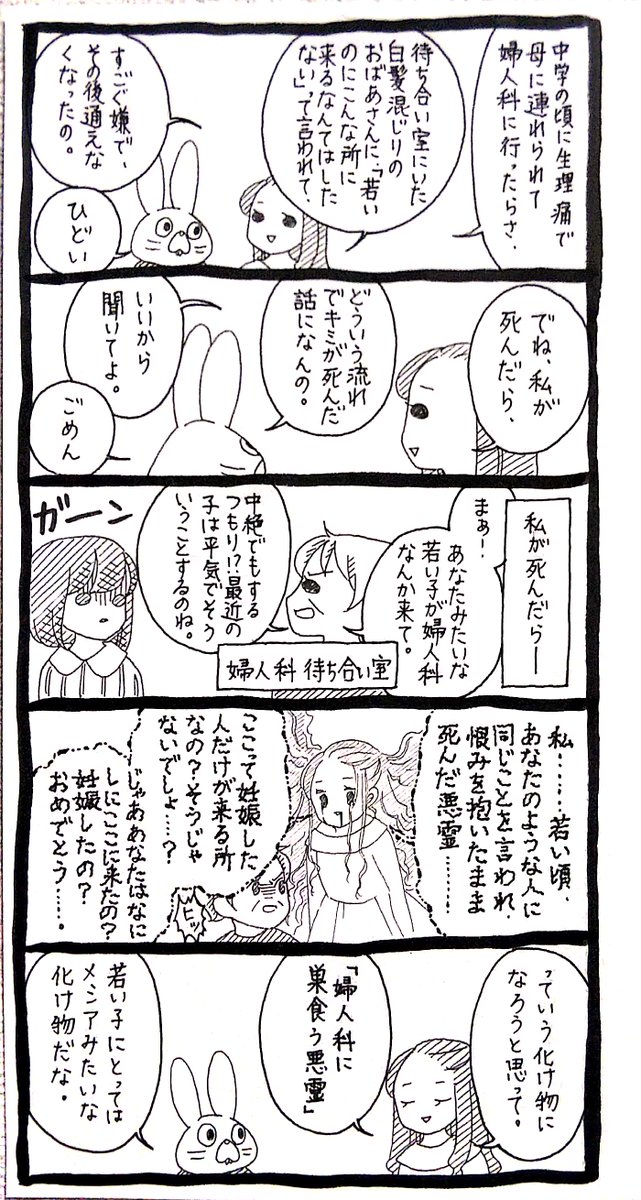 中学の頃に生理痛で
母に連れられて
婦人科に行ったらさ、
待ち合い室にいた
白髪混じりの
おばあさんに、「若い
のにこんな所に
来るなんてはした
ない」って言われて、
すごく嫌で、
その後通えな
くなったの。
ひどい
でね、私が
死んだら、
どういう流れ
でキミが死んだ
話になんの。
いいから
聞いてよ。
ごめん
私が死んだらー
まぁ!
あなたみたいな
若い子が婦人科
なんか来て。
中絶でもする
つもり!?最近の
子は平気でそう
いうことするのね。
婦人科 待ち合い室
ガーン
私……若い頃、
あなたのような人に
同じことを言われ、
恨みを抱いたまま
死んだ悪霊………
ここって妊娠した
人だけが来る所
なの?そうじゃ
ないでしょ……?
じゃああなたはなに
しにここに来たの?
妊娠したの?
おめでとう……。
ヒッ
っていう化け物に
なろうと思って。
「婦人科に
巣食う悪霊」
若い子にとっては
メシアみたいな
化け物だな。